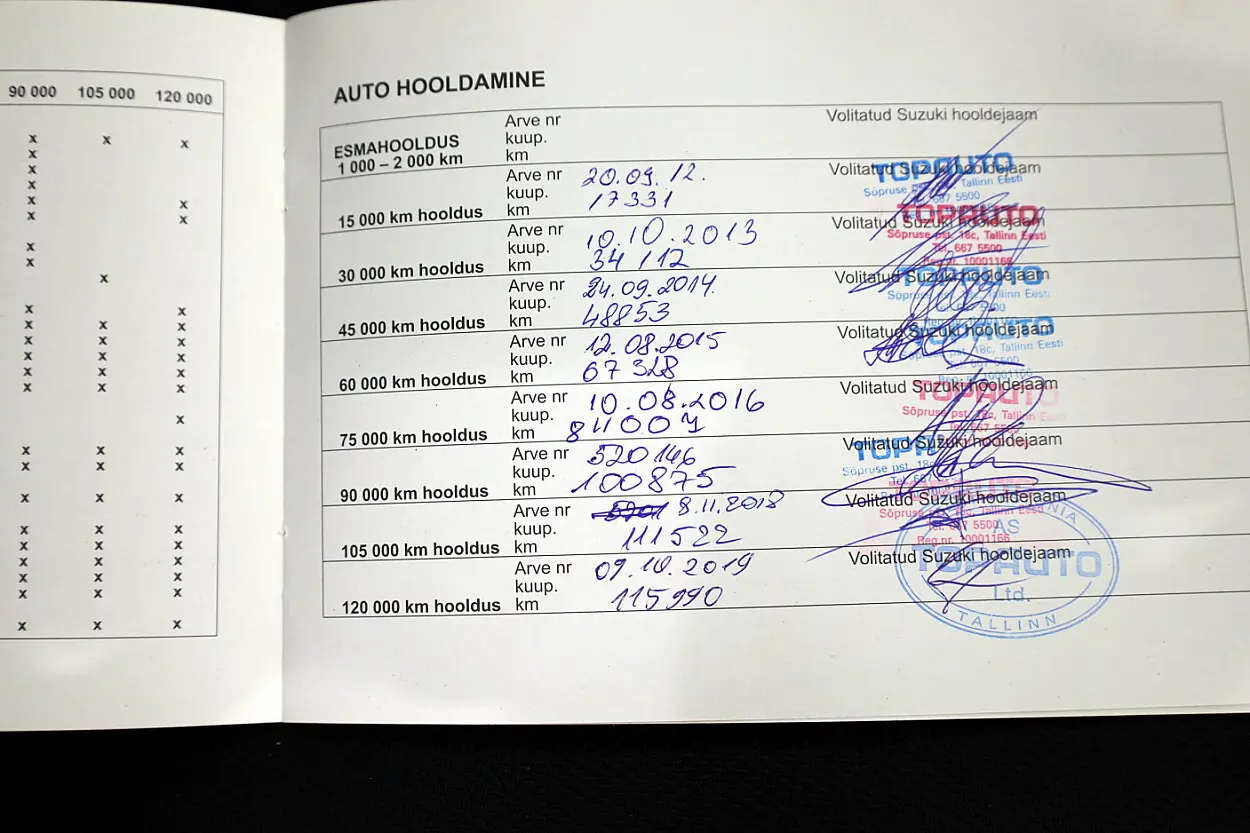 90 000 105 000 120 000
x x x
x
x
x
x x
x x
x
x
x
x x
x x x
x x x
x x x
x x x
x x x
x
x x x
x x x
x x x
x x x
x x x
x x x
x x x
x x x
x x x
AUTO HOOLDAMINE
ESMAHOOLDUS
1 000 – 2 000 km
Arve nr
kuup.
km
Volitatud Suzuki hooldejaam
15 000 km hooldus
Arve nr
kuup. 20.09.12.
km 17331
Volitatud Suzuki hooldejaam
TOPAUTO
Sõpruse pst. Tallinn Eesti
667 5500
30 000 km hooldus
Arve nr
kuup. 10.10.2013
km 34112
Volitatud Suzuki hooldejaam
TOPAUTO
Sõpruse pst. 18c, Tallinn Eesti
Tel. 667 5500
Reg.nr. 10001166
45 000 km hooldus
Arve nr
kuup. 24.09.2014.
km 48853
Volitatud Suzuki hooldejaam
TOPAUTO
60 000 km hooldus
Arve nr
kuup. 12.08.2015
km 67328
Volitatud Suzuki hooldejaam
pst. 18c, Tallinn Eesti
75 000 km hooldus
Arve nr
kuup. 10.08.2016
km 84007
Volitatud Suzuki hooldejaam
TOPAUTO
Sõpruse pst. 18c, Tallinn
667 5500
90 000 km hooldus
Arve nr 520146
kuup.
km 100875
Volitatud Suzuki hooldejaam
Sõpruse pst.
105 000 km hooldus
Arve nr 8.11.2018
kuup.
km 111522
Volitatud Suzuki hooldejaam
Reg.nr. 10001166
120 000 km hooldus
Arve nr 09.10.2019
kuup.
km 115990
Volitatud Suzuki hooldejaam
AS
TOPAUTO
Ltd.
TALLINN